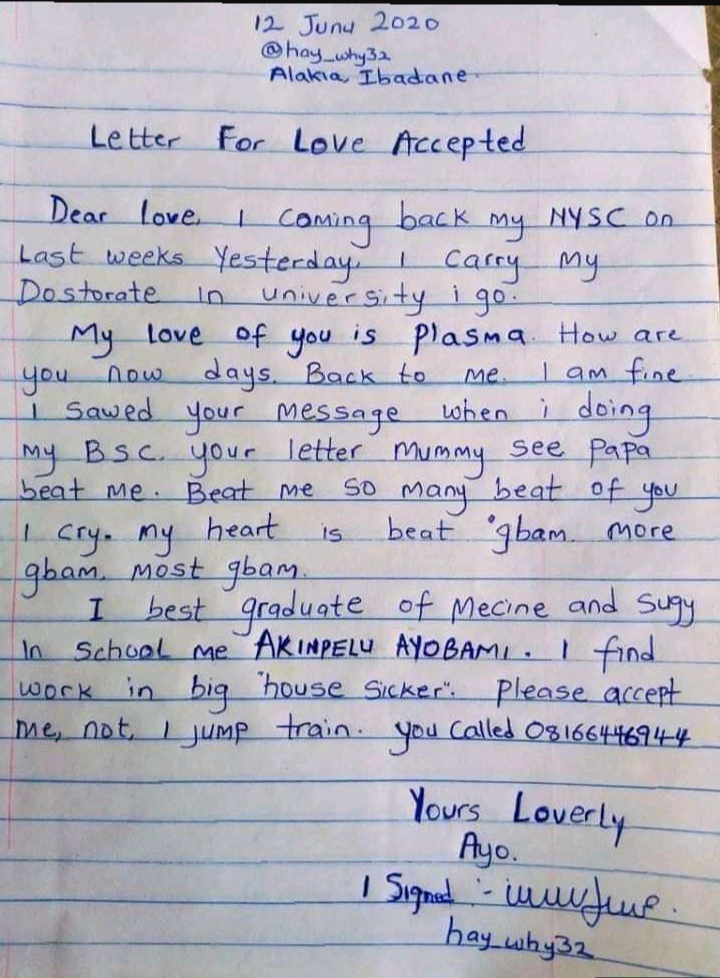 12 Juny 2020
@hay_why32
Alakia Ibadane.
Letter For Love Accepted
Dear love, I coming back my NYSC on
Last weeks Yesterday. I carry my
Dostorate in university i go.
My love of you is plasma. How are
you now days. Back to me. I am fine
I sawed your message when i doing
my BSC. your letter mummy see papa
beat me. Beat me so many beat of you
I cry. my heart is beat "gbam. more
gbam. most gbam.
I best graduate of Mecine and Sugy
In School me AKINPELU AYOBAMI. I find
work in big "house sicker". Please accept
me, not, I jump train. you called 08166446944
Yours Loverly
Ayo.
I Signed :-
hay_why32